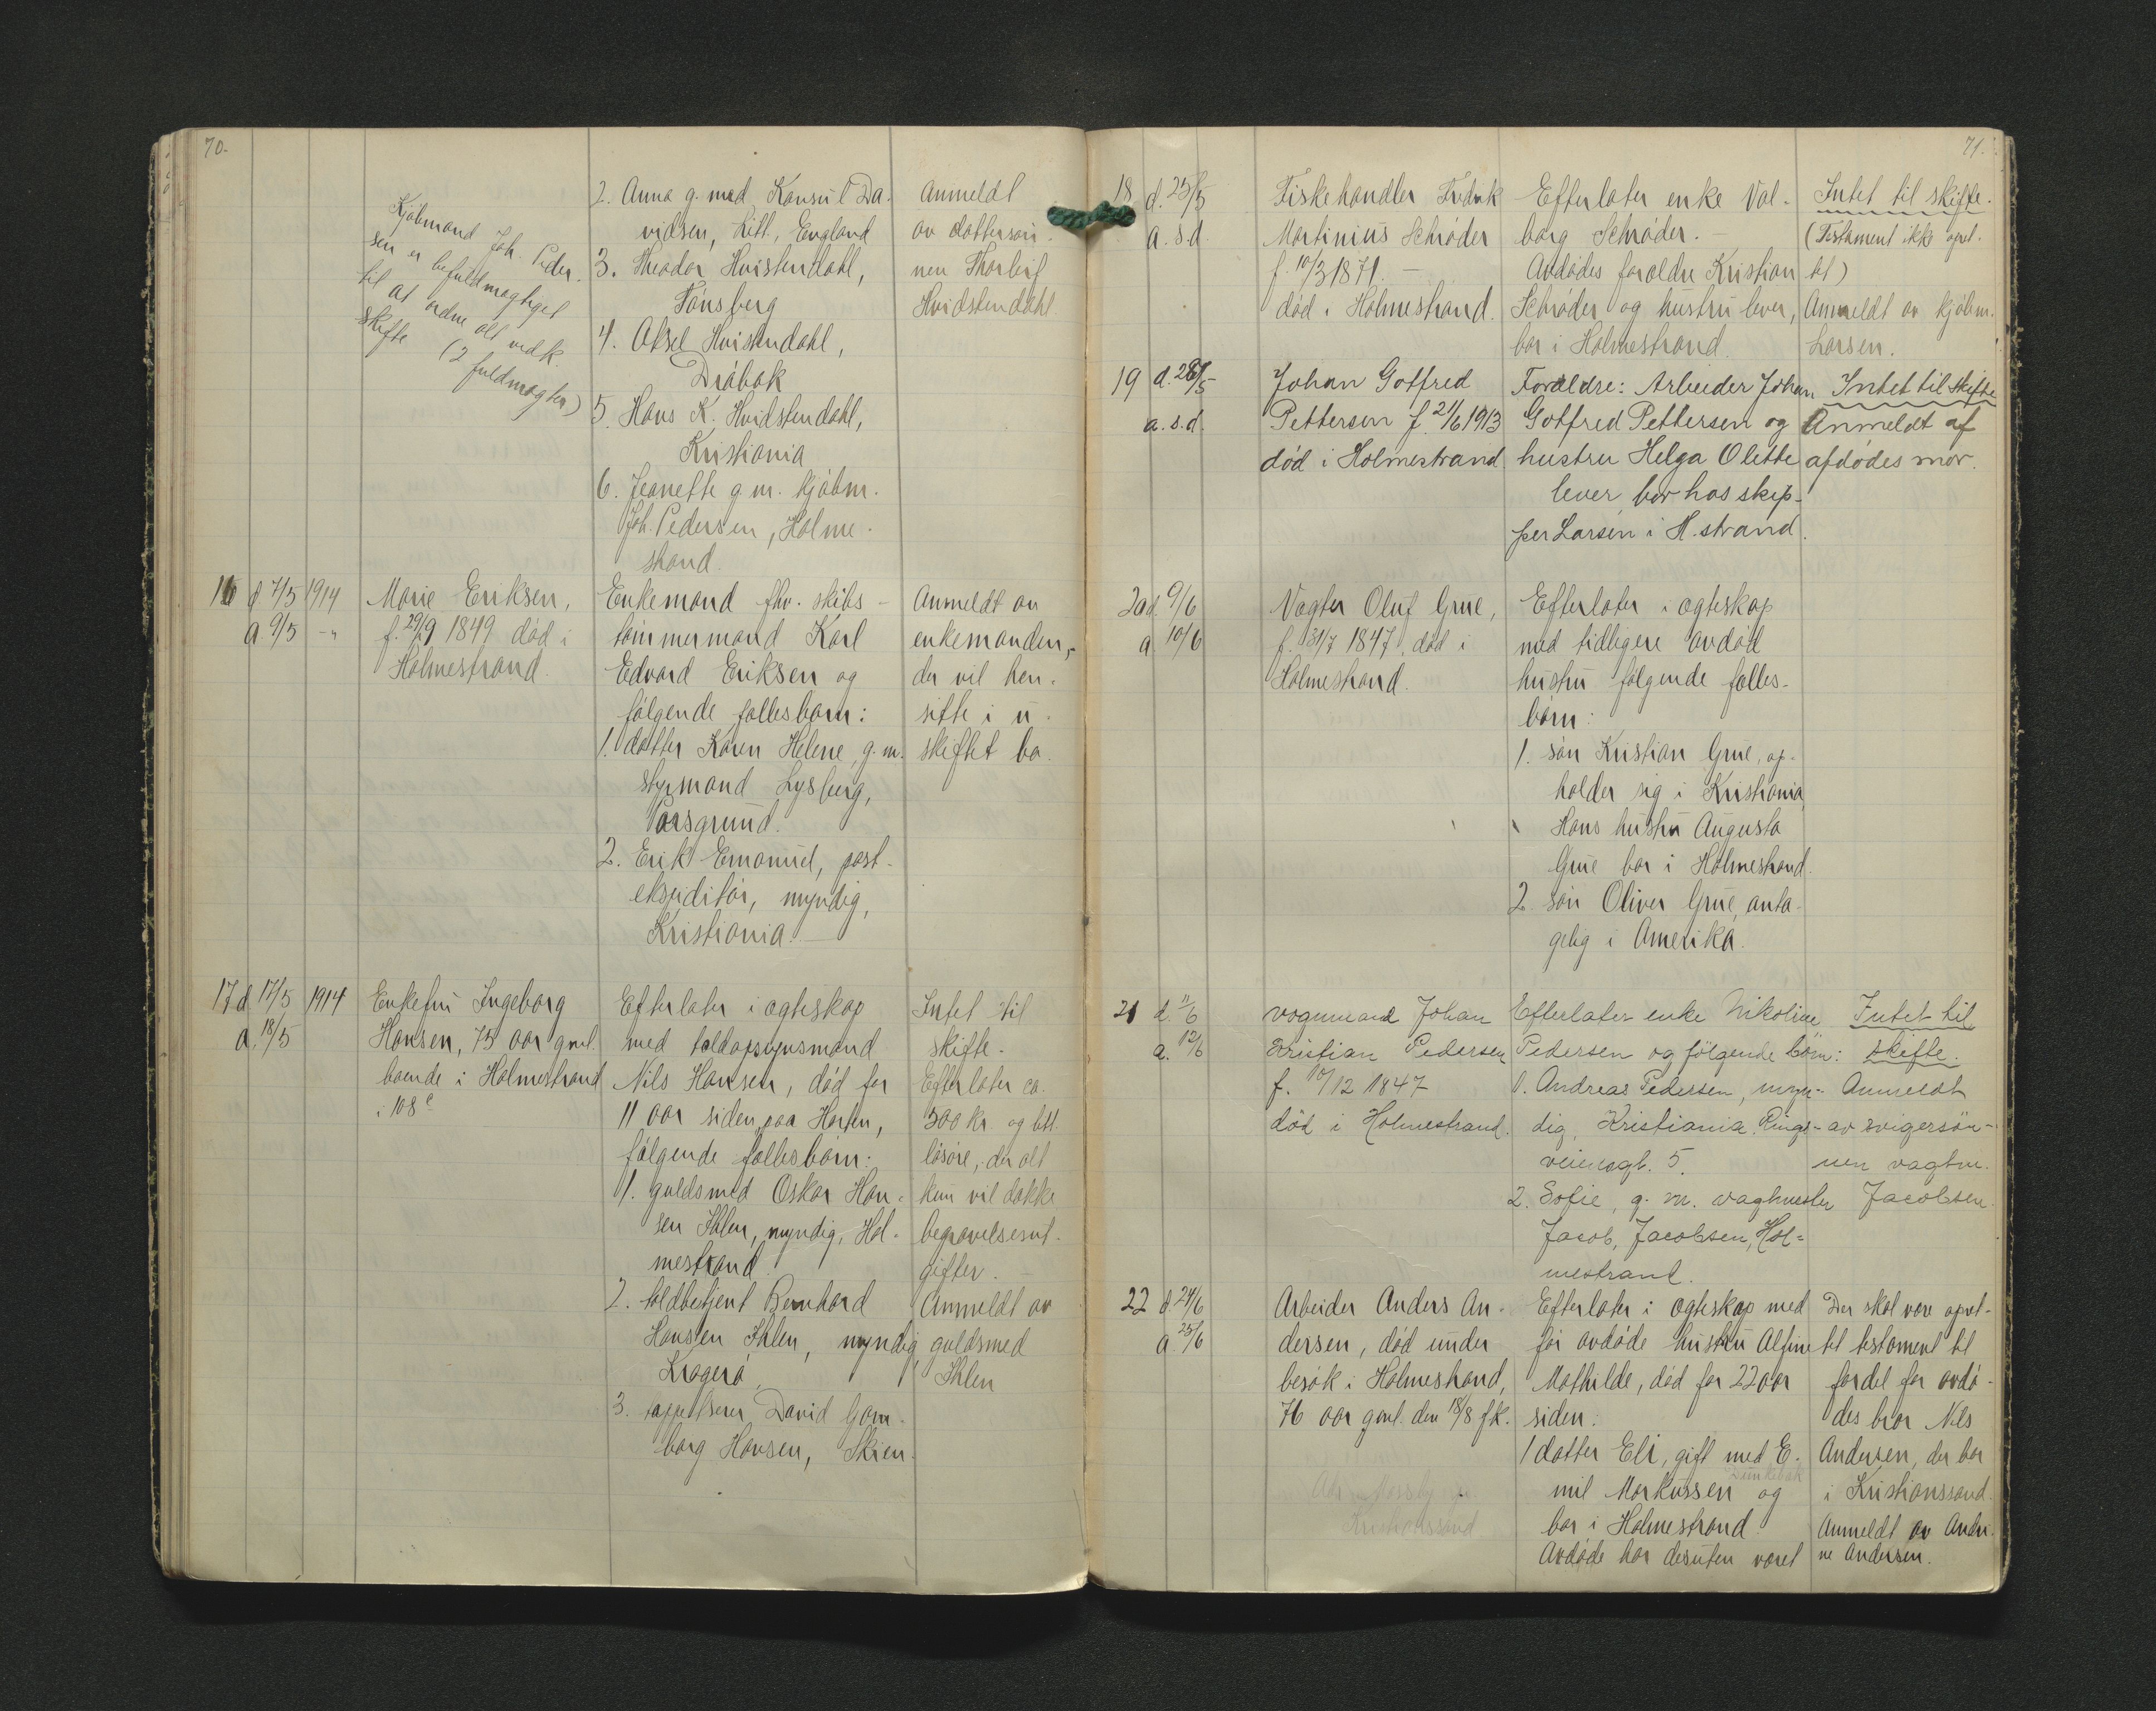 70.
Kjøbmand Joh. Peder-
sen er befuldmægtiget
til at ordne alt vedk.
skifte (2 fuldmagter)
2. Anna g. med Konsul Da-
vidsen, Litt., England
3. Theodor Hvistendahl,
Tönsberg
4. Aksel Hvistendahl,
Dröbak
5. Hans K. Hvidstendahl,
Kristiania
6. Jeanette g. m. kjöbm.
Joh. Pedersen, Holme-
strand.
Anmeldt
av dattersön-
nen Thorleif
Hvidstendahl
16 d 7/5 1914
a 9/5 -"-
Marie Eriksen,
f. 29/9 1849 död i
Holmestrand.
Enkemand fhv. skibs-
tömmermand Karl
Edvard Eriksen og
fölgende fællesbarn:
1. datter Karen Helene, g. m.
styrmand Lysberg,
Porsgrund.
2. Erik Emanuel, post-
ekspeditör, myndig,
Kristiania.
Anmeldt av
enkemanden,
der vil hen-
sitte i u-
skiftet bo.
17 d 17/5 1914
a. 18/5
Enkefru Ingeborg
Hansen, 75 aar gml.
boende i Holmestrand
i 108 c
Efterlater i ægteskap
med toldopsynsmand
Nils Hansen, död for
11 aar siden paa Horten,
fölgende fællesbörn:
1. guldsmed Oskar Han-
sen Ihlen, myndig, Hol-
mestrand
2. toldbetjent Bernhard
Hansen Ihlen, myndig
Kragerö,
3. repetserer David Gam-
borg Hansen, Skien.
Intet til
skifte.
Efterlater ca.
300 kr. og litt
lösöre, der alt
kun vil dække
begravelsesut-
gifter.
Anmeldt av
guldsmed
Ihlen
71.
18 d. 25/5
a. s. d.
Fiskehandler Fredrik
Martinius Schröder
f. 10/3 1871.
död i Holmestrand.
Efterlater enke Val-
borg Schröder.
Avdödes forældre Kristian
Schröder og hustru lever,
bor i Holmestrand.
Intet til skifte.
(Testament ikke opret-
tet)
Anmeldt av kjöbm.
Larsen.
19 d. 28/5
a. s. d.
Johan Gotfred
Pettersen f. 21/6 1913
död i Holmestrand
Foreldre: Arbeider Johan
Gotfred Pettersen og
hustru Helga Olette
lever bor hos skip-
per Larsen i H.strand.
Intet til skifte
Anmeldt af
afdödes mor.
20 d. 9/6
a 10/6
Vægter Oluf Grue,
f. 31/7 1847, död i
Holmestrand.
Efterlater i ægteskap
med tidligere avdöd
hustru fölgende fælles-
börn:
1. sön Kristian Grue, op-
holder sig i Kristiania
Hans hustru Augusta
Grue bor i Holmestrand.
2. sön Oliver Grue, anta-
gelig i Amerika.
21 d. 11/6
a. 12/6
vognmand Johan
Kristian Pedersen
f. 10/12 1847
död i Holmestrand.
Efterlater enke Nikoline
Pedersen og fölgende börn:
1. Andreas Pedersen, myn-
dig, Kristiania. Rings-
veiensgt. 5.
2. Sofie, g. m. vagtmester
Jacob, Jacobsen, Hol-
mestrand.
Intet til
skifte.
Anmeldt
av svigersön-
nen vagtm.
Jacobsen.
22 d. 24/6
a. 25/6
Arbeider Anders An-
dersen, död under
besök i Holmestrand,
76 aar gml. den 18/8 f.k.
Kristianssand
Efterlater i ægteskap med
för avdöde hustru Alfine
Mathilde, död for 22 aar
siden:
1 datter Eli, gift med E-
mil Markussen og
bor i Holmestrand.
Avdöde har desuten været
Der skal være opret-
tet testament til
fordel for avdö-
des bror Nils
Andersen, der bor
i Kristianssand.
Anmeldt av Andri-
ne Andersen.